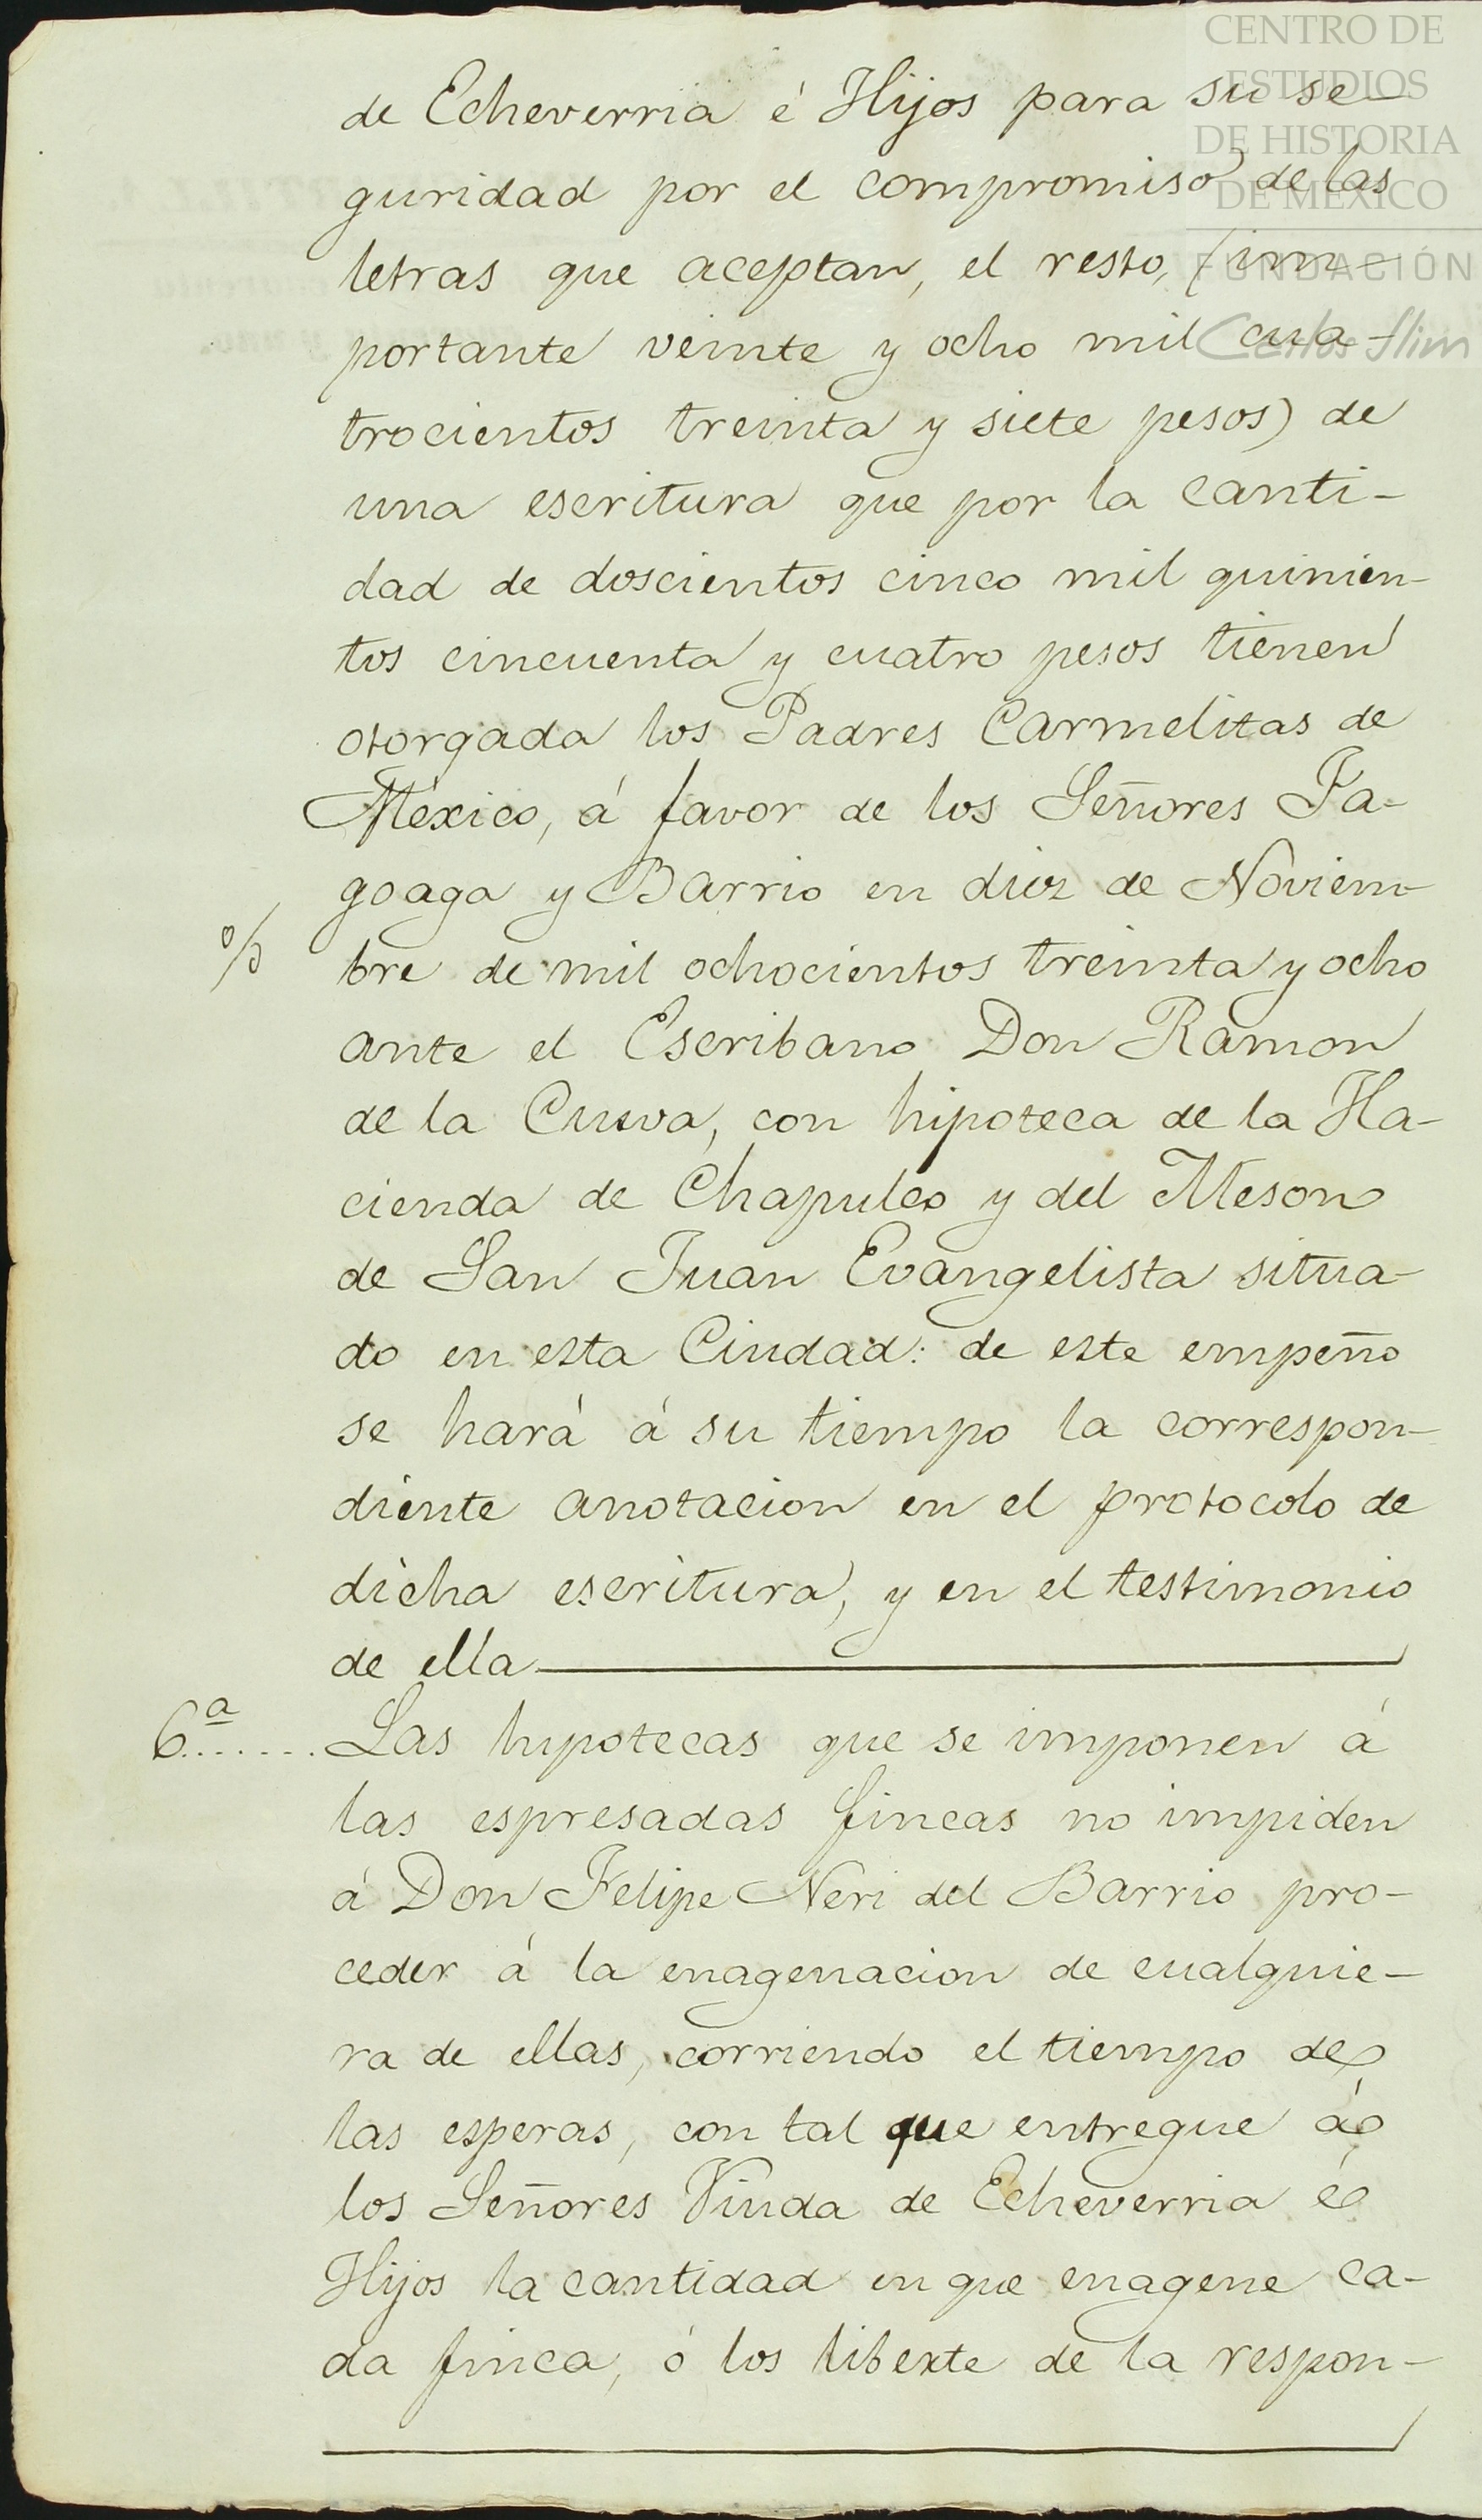 CENTRO DE
ESTUDIOS
DE HISTORIA
DE MÉXICO
FUNDACIÓN
Carlos Slim
de Echeverria é Hijos para su se-
guridad por el compromiso de las
letras que aceptan, el resto, (im-
portante veinte y ocho mil cua-
trocientos treinta y siete pesos) de
una escritura que por la canti-
dad de doscientos cinco mil quinien-
tos cincuenta y cuatro pesos tienen
otorgada los Padres Carmelitas de
México, á favor de los Señores Fa-
goaga y Barrio en diez de Noviem-
bre de mil ochocientos treinta y ocho
ante el Escribano Don Ramon
de la Cueva, con hipoteca de la Ha-
cienda de Chapulco y del Meson
de San Juan Evangelista situa-
do en esta Ciudad: de este empeño
se hará á su tiempo la correspon-
diente anotacion en el protocolo de
dicha escritura, y en el testimonio
de ella
6ª....... Las hipotecas que se imponen á
las espresadas fincas no impiden
á Don Felipe Neri del Barrio pro-
ceder á la enagenacion de cualquie-
ra de ellas, corriendo el tiempo de
las esperas, con tal que entregue á
los Señores Viuda de Echeverria é
Hijos la cantidad en que enagene ca-
da finca, ó los liberte de la respon-